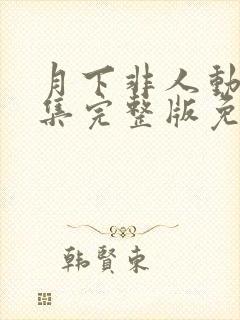 月下非人動
集完整版免
韩賢東